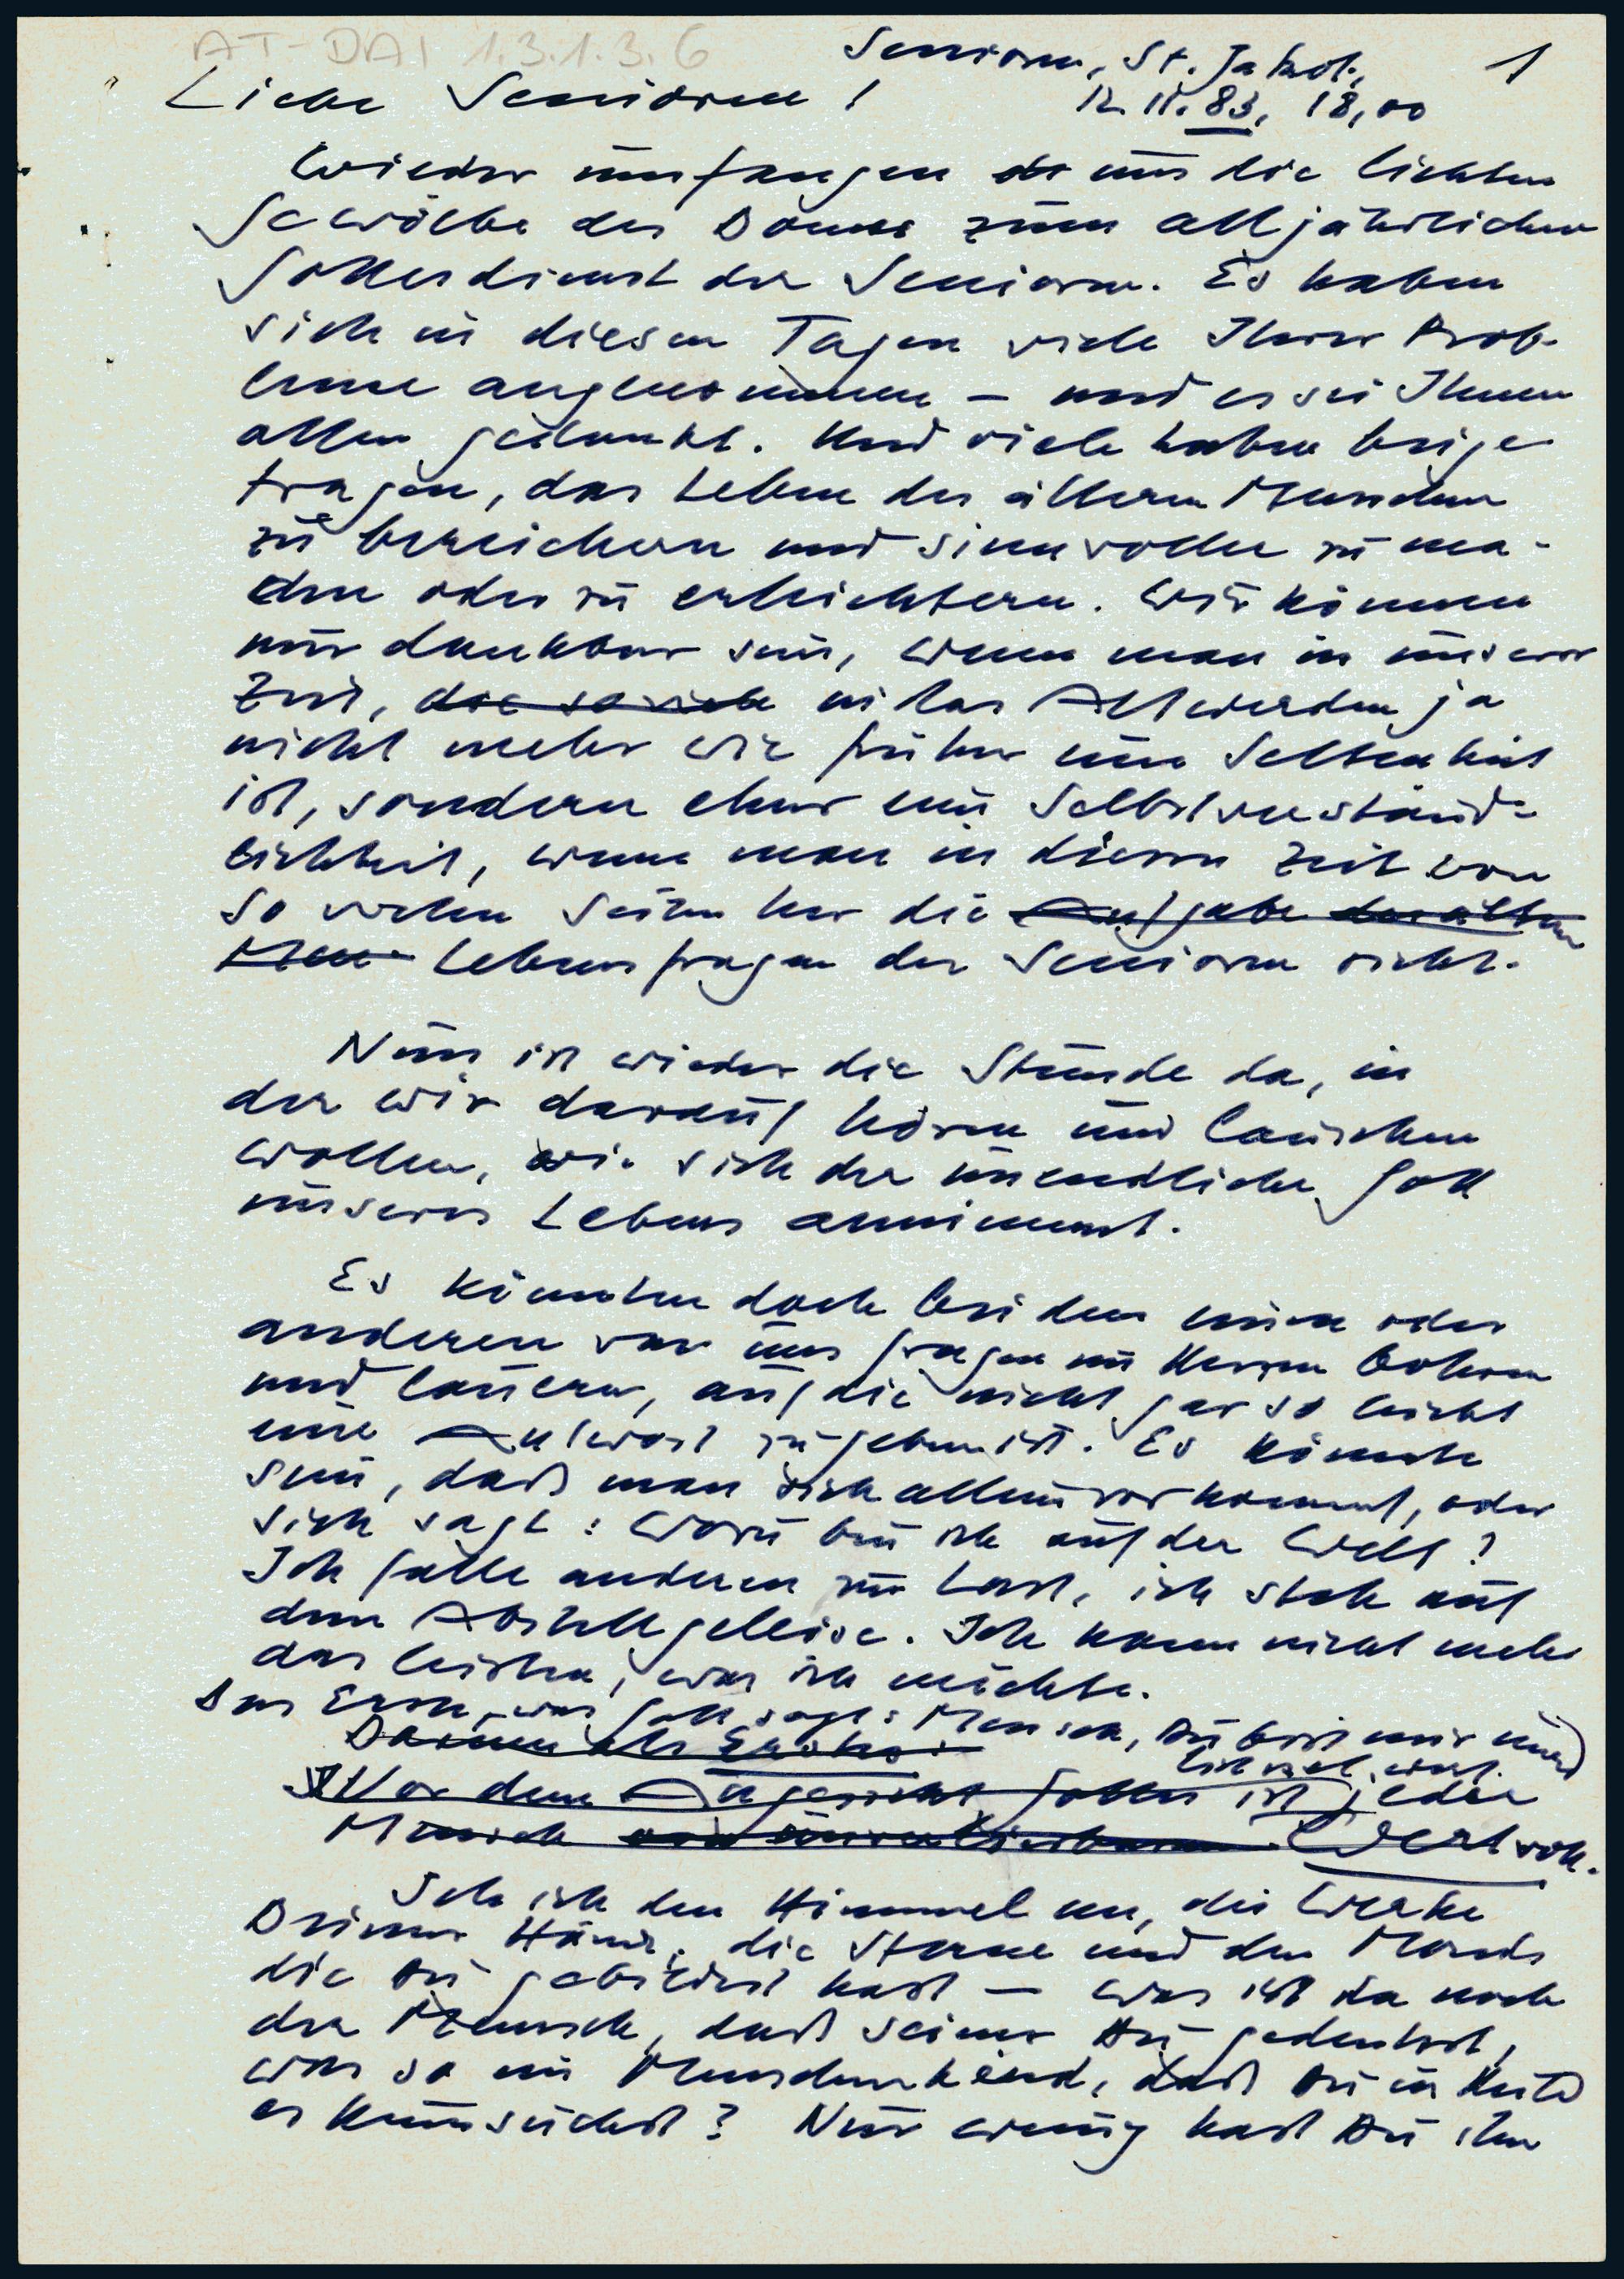 AT-DAI 1.3.1.3.6
Senioren, St. Jakob,
12.11.83, 18,00
1
Liebe Senioren!
Wieder umfangen uns die lichten
Gewölbe des Domes zum alljährlichen
Gottesdienst der Senioren. Es haben
sich in diesen Tagen viele Ihrer Prob-
leme angenommen – und es sei Ihnen
allen gedankt. Und viele haben beige-
tragen, das Leben des älteren Menschen
zu bereichern und sinnvoller zu ma-
chen oder zu erleichtern. Wir können
nur dankbar sein, wenn man in unserer
Zeit, die so viele in der das Altwerden ja
nicht mehr wie früher eine Seltenheit
ist, sondern eher eine Selbstverständ-
lichkeit, wenn man in dieser Zeit von
so vielen Seiten her die Aufgabe des älteren
Men- Lebensfragen der Senioren sieht.
Nun ist wieder die Stunde da, in
der wir darauf hören und lauschen
wollen, wie sich der unendliche Gott
unseres Lebens annimmt.
Es könnten doch bei dem einen oder
anderen von uns Fragen im Herzen bohren
und lauern, auf die nicht gar so leicht
eine Antwort zu geben ist. Es könnte
sein, daß man sich allein vorkommt, oder
sich sagt: Wozu bin ich auf der Welt?
Ich falle anderen zur Last, ich steh auf
dem Abstellgeleise. Ich kann nicht mehr
das leisten, was ich möchte.
Das Erste, was Gott sagt: Mensch, Du bist mir unend-
lich viel wert.
Darum als Erstes:
Vor dem Angesicht Gottes ist jeder
Mensch von unverlierbarem Wert voll.
Seh ich den Himmel an, die Werke
Deiner Hände, die Sterne und den Mond,
die Du gebildet hast – was ist da noch
der Mensch, daß seiner Du gedenkst,
was so ein Menschenkind, daß Du in Huld
es heimsuchst? Nur wenig hast Du ihn